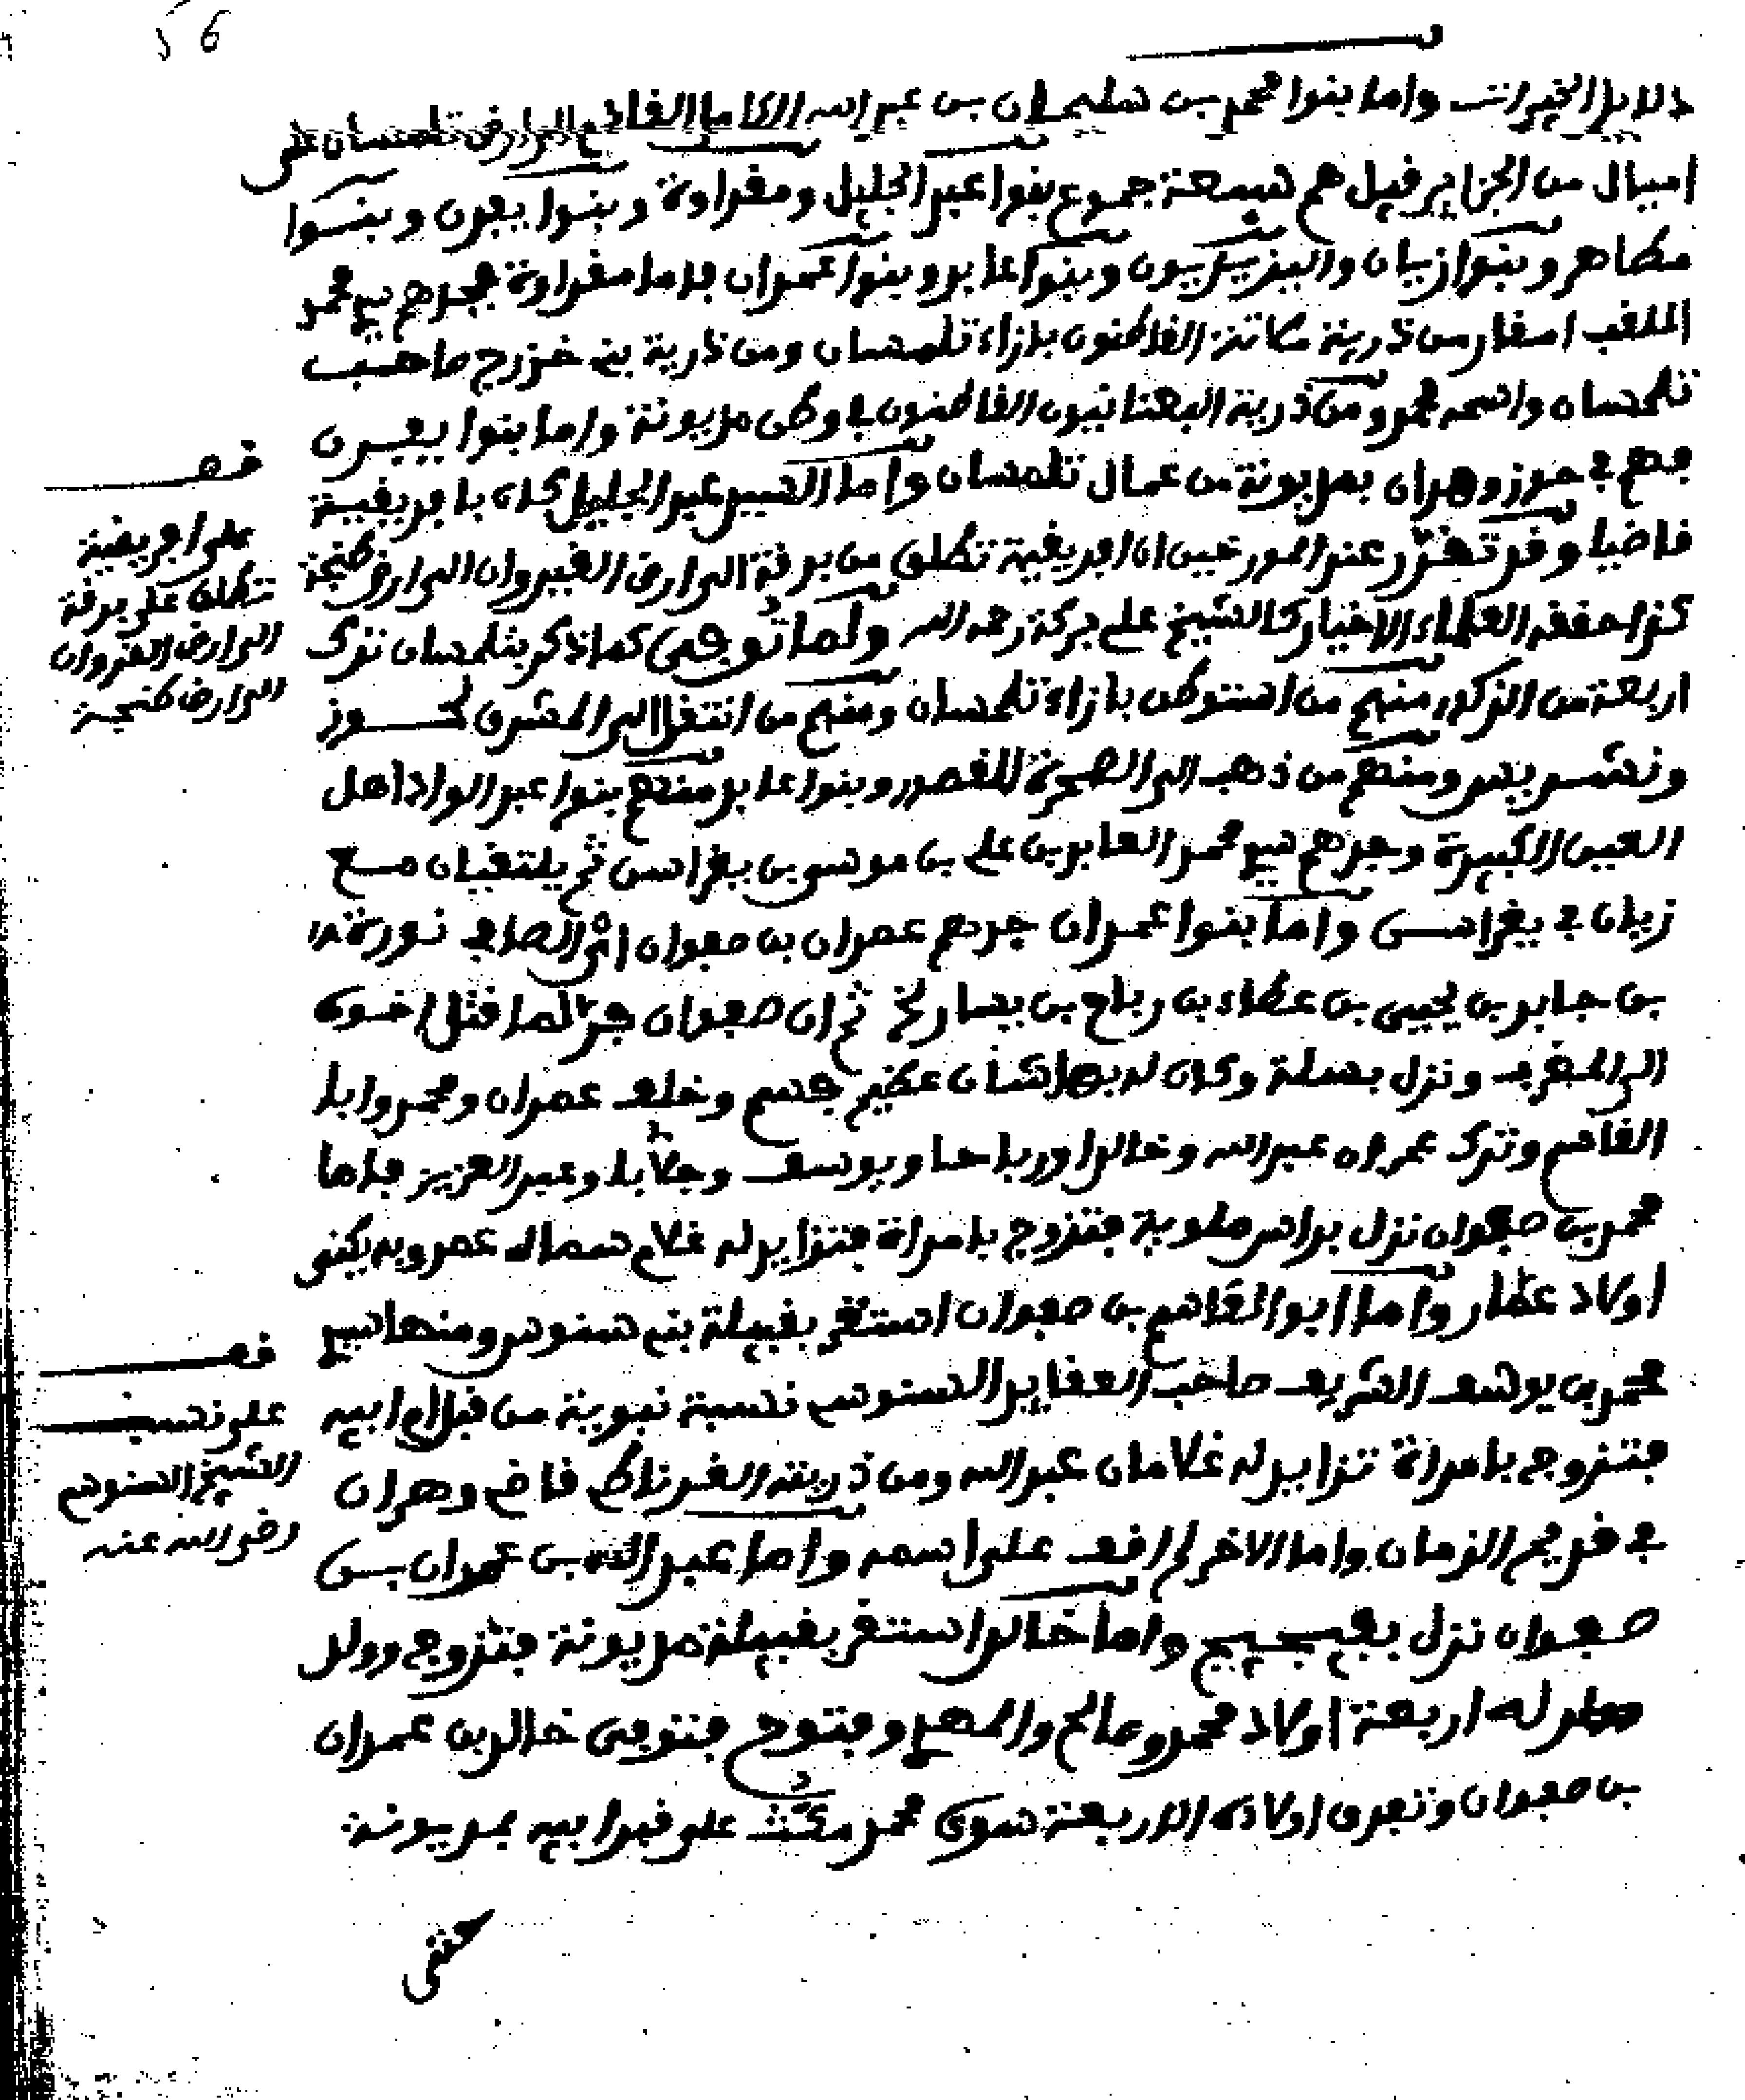 56
دلايل الخيرات واما بنوا محمد بن سليمان بن عبد الله الكامل القادم الى ارض تلمسان على
اميال من الجزاير قيل هم سبعة جموع بنوا عبد الجليل ومغراوة وبنوا يفرن وبنوا
مطاهر وبنوا زيان والبزيريون وبنوا عابر وبنوا عمران فاما مغراوة فجدهم سيد محمد
الملقب اسفار من ذرينة القاطنون بازاء تلمسان ومن ذرية بنى خزرج صاحب
تلمسان واسمه محمد ومن ذرية القاطنون في وطن مديونة واما بنوا يفرن
فهم في حوز وهران بمديونة من عمال تلمسان واما السيد عبد الجليل كان بافريقية
قاضيا وقد تقرر عند المورخين ان افريقية تطلق من برقة الى ارض القيروان الى ارض طنجة
كذا حققه العلماء الاخيار كالشيخ على بركة رحمه الله ولما توفى كما ذكر بتلمسان ترك
اربعة من الذكور منهم من استوطن بازاء تلمسان ومنهم من انتقل الى المشرق لحوز
ونشريس ومنهم من ذهب الى الصحرة للقصور وبنوا عابر منهم بنوا عبد الواد اهل
العين الكبيرة وجدهم سيد محمد العابد بن على بن موسى بن يغراسن ثم يلتقيان مع
زيان في يغراسن واما بنوا عمران جدهم عمران بن صفوان
بن جابر بن يحيى بن عطاء بن رباح بن يسار لخ ثم ان صفوان فر لما قتل اخوه
الى المغرب ونزل بسلة وكان له بها شان عظيم وخلف عمران ومحمد وابا
القاسم وترك عمران عبد الله وخالدا ورباحا ويوسف وعبد العزيز فاما
محمد بن صفوان نزل براس ملوية فتزوج بامراة فتزايد له غلام سماه عمر وبه يكنى
اولاد عطار واما ابوا القاسم بن صفوان استقر بقبيلة بنى سنوس ومنها سيد
محمد بن يوسف الشريف صاحب العقايد السنوسى نسبة نبوية من قبل ام ابيه
فتزوج بامراة تزايد له غلامان عبد الله ومن ذريته الغرناطى قاضى وهران
في قديم الزمان واما الاخر لم اقف على اسمه واما عبد الله بن عمران بن
صفوان نزل بفجيج واما خالد استقر بقبيلة مديونة فتزوج وولد
له اربعة اولاد محمد وصالح وفتوح فتوفى خالد بن عمران
بن صفوان وتفرق اولاده الاربعة سوى محمد مكث على قبر ابيه بمديونة
حتى
قف
على افريقية
تطلق على برقة
الى ارض القيروان
الى ارض طنجة
قف
على نسب
الشيخ السنوسى
رضى الله عنه